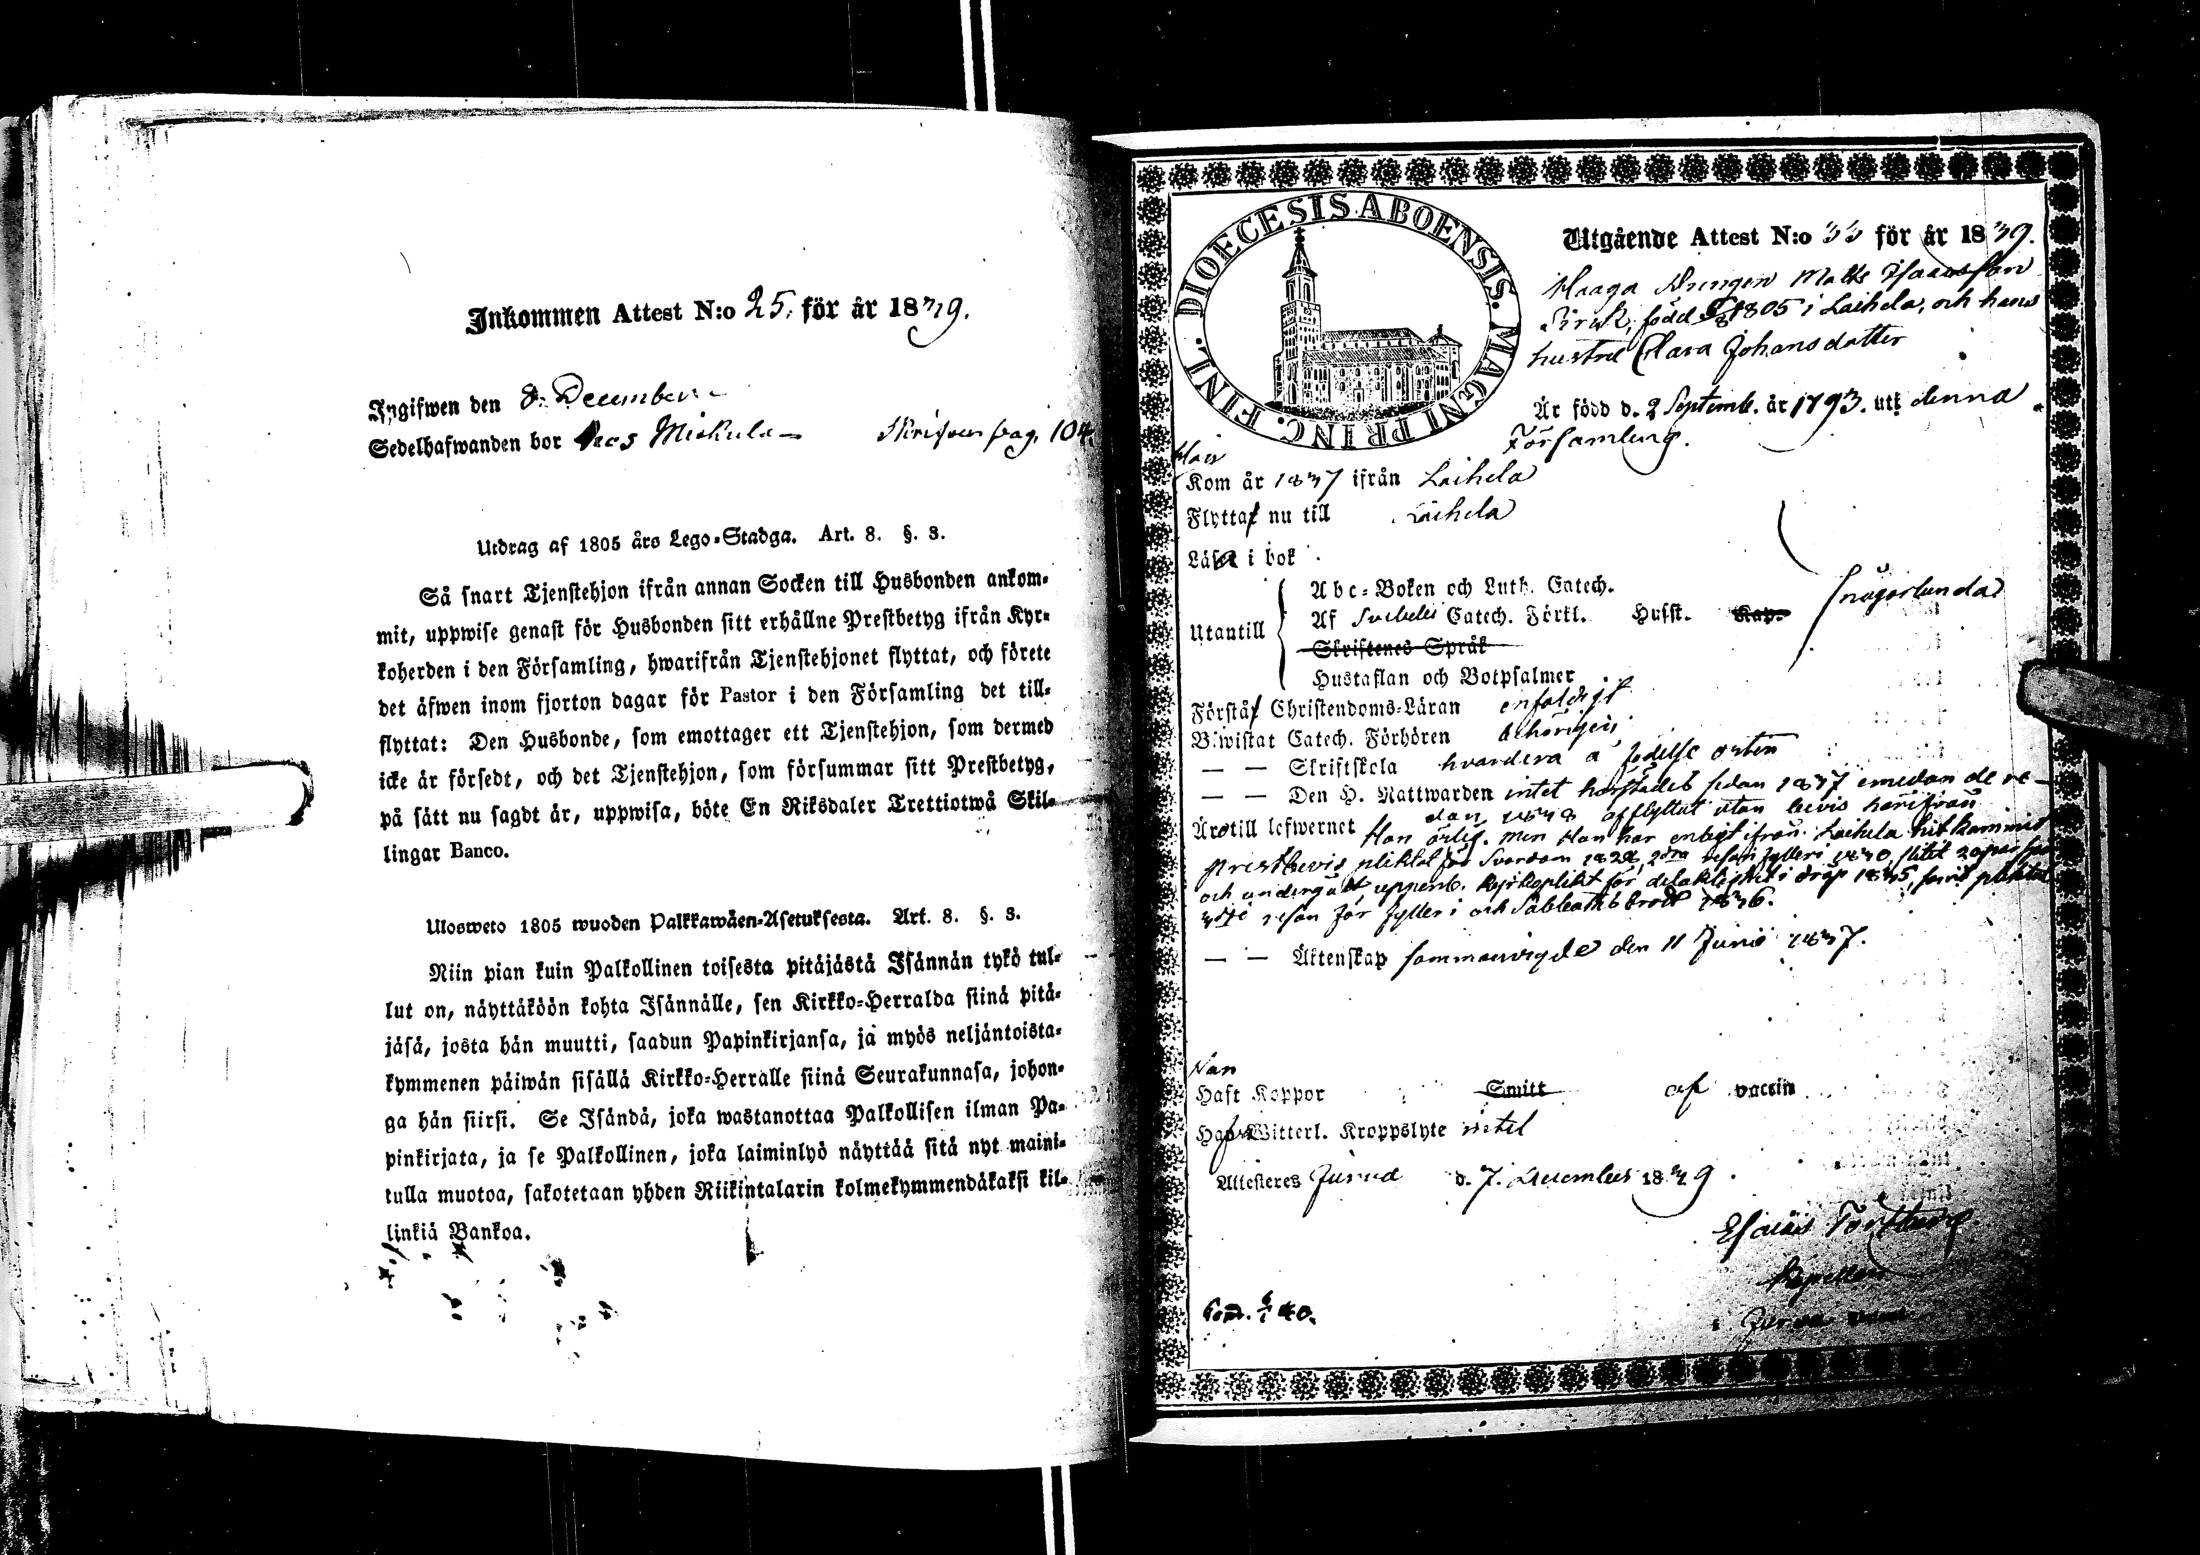 Inkommen Attest N:o 25. för år 1839.
Ingifwen den 8. December
Sedelhafwanden bor hos Mickula Skrifven pag. 104.
Utdrag af 1805 års Lego-Stadga. Art. 8. §. 3.
Så snart Tjenstehjon ifrån annan Socken till Husbonden ankom-
mit, uppwise genast för Husbonden sitt erhållne Prestbetyg ifrån Kyr-
koherden i den Församling, hwarifrån Tjenstehjonet flyttat, och förete
det äfwen inom fjorton dagar för Pastor i den Församling det till-
flyttat: Den Husbonde, som emottager ett Tjenstehjon, som dermed
icke är försedt, och det Tjenstehjon, som försummar sitt Prestbetyg,
på sätt nu sagdt är, uppwisa, böte En Riksdaler Trettiotwå Skil-
lingar Banco.
Ulosweto 1805 wuoden Palkkawäen-Asetuksesta. Art. 8. §. 3.
Niin pian kuin Palkollinen toisesta pitäjästä Isännän tykö tul-
lut on, näyttäköön kohta Isännälle, sen Kirkko-Herralda siinä pitä-
jäsä, josta hän muutti, saadun Papinkirjansa, ja myös neljäntoista-
kymmenen päiwän sisällä Kirkko-Herralle siinä Seurakunnasa, johon-
ga hän siirsi. Se Isändä, joka wastanottaa Palkollisen ilman Pa-
pinkirjata, ja se Palkollinen, joka laiminlyö näyttää sitä nyt maini-
tulla muotoa, sakotetaan yhden Riikintalarin kolmekymmendäkaksi kil-
linkiä Bankoa.
DIOECESIS ABOENSIS. MAGNI PRINC. FINL.
Utgående Attest N:o 33 för år 1839.
Haaga Drengen Matts Isaacsson
Sirck, född 1805 i Laihela, och hans
hustru Clara Johansdotter
Är född d. 2 Septemb. år 1793. uti denna
Församling.
Han
Kom år 1837 ifrån Laihela
Flytta nu till Laihela
Läsa i bok
Utantill
Abc-Boken och Luth. Catech.
Af Svebelii Catech. Förkl. Hufst. Kap. någorlunda
Skriftenes Språk
Hustaflan och Botpsalmer
Förstå Christendoms-Läran enfaldigt
Biwistat Catech. Förhören behörigen
— — Skriftskola hvardera å födelse orten
— — Den H. Nattwarden intet härstädes sedan 1837 emedan de re-
dan 1838 afflyttat utan bevis härifrån
Äro till lefwernet Han ärlig. men Han har enligt ifrån Laihela hit kommit
prestbevis pliktat för Svordom 1829, 2dra resan fylleri 1830, slitit 20 par spö
och undergått uppenb. Kyrkoplikt för delaktighet i dråp 1835, samt pliktat
3dje resan för fylleri och Sabbathsbrott 1836.
— — Äktenskap sammanvigde den 11 Junii 1837.
Haft Koppor Smitt af vaccin
Hafva Witterl. Kroppslyte intet
Attesteres Jurva d. 7. December 1839.
Esaias
Kapellan
i Jurva